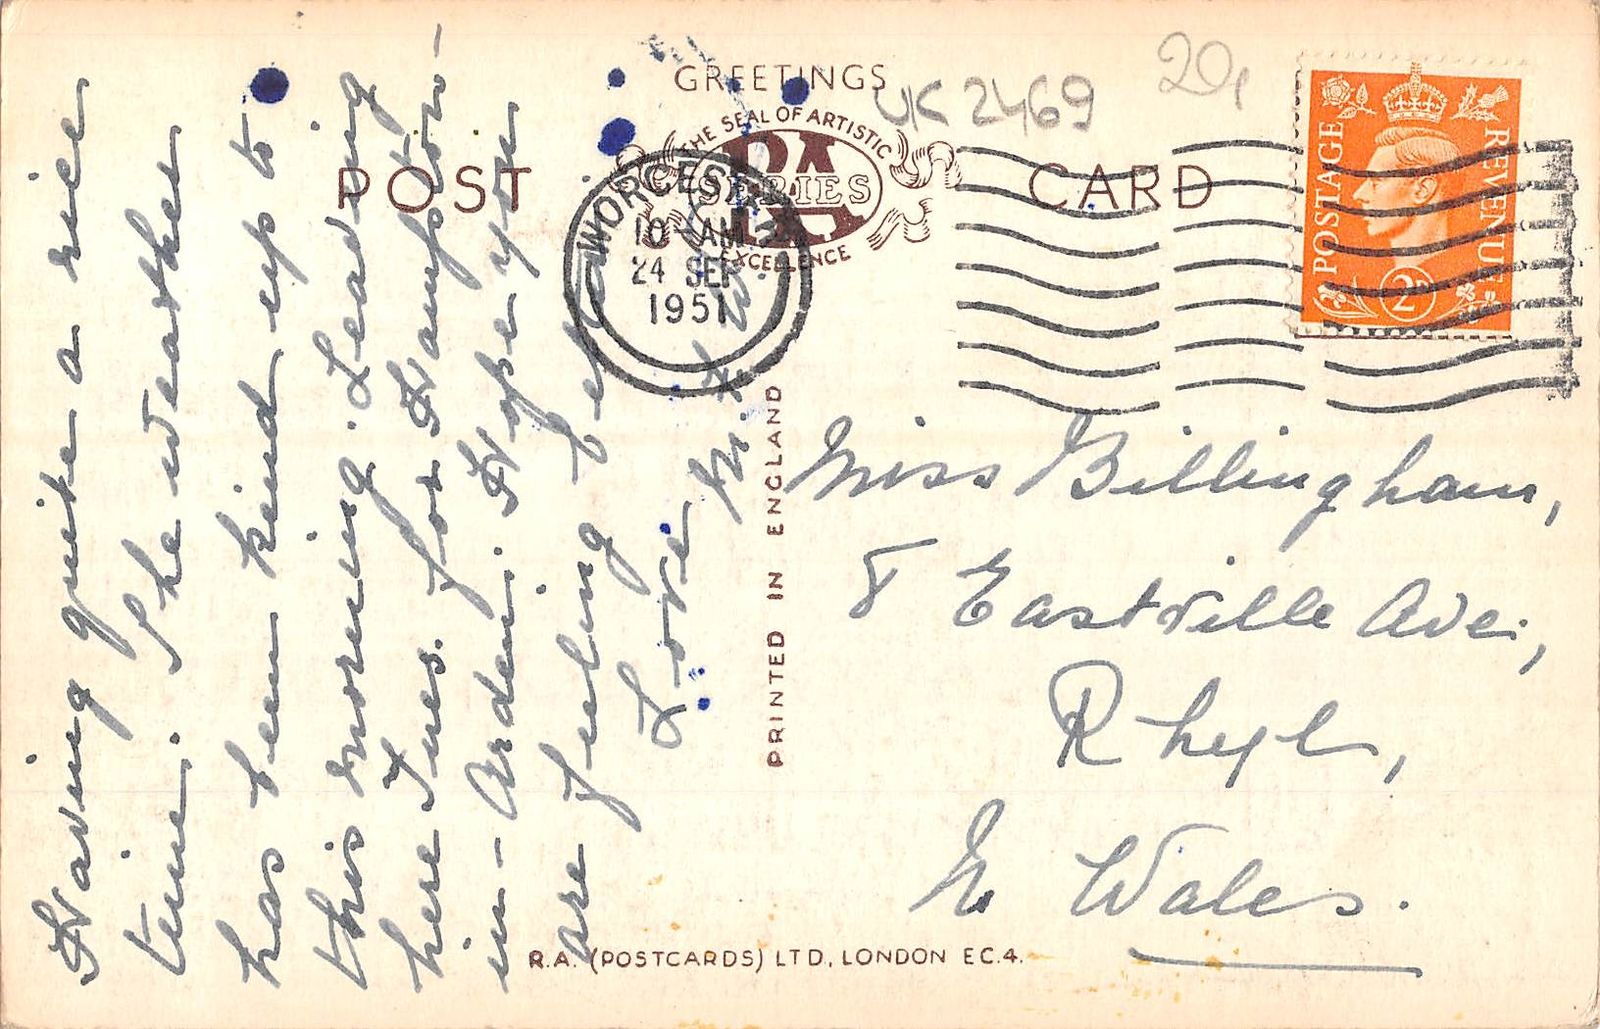 GREETINGS
UK 2469
20,
THE SEAL OF ARTISTIC
RA
SERIES
EXCELLENCE
POST CARD
WORCESTER
10 - AM
24 SEP
1951
POSTAGE
REVENUE
2D
Having quite a nice
time. The weather
has been kind up to
this morning. Leaving
here Tues. for Hampton-
in-Arden. Hope you
are feeling better
Love
PRINTED IN ENGLAND
Miss Billingham,
8 Eastville Ave.,
Rhyl,
N. Wales.
R.A. (POSTCARDS) LTD, LONDON EC.4.